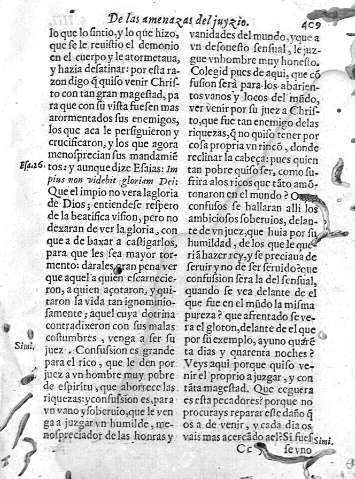 De las amenazas del juyzio. 409
lo que lo sintio, y lo que hizo,
que se le reuistio el demonio
en el cuerpo y le atormetaua,
y hazia desatinar: por esta ra-
zon digo q̃ quiso venir Chris-
to con tan gran magestad, pa
ra que con su vista fuessen mas
atormentados sus enemigos,
los que aca le persiguieron y
crucificaron, y los que agora
menosprecian sus mandamiē-
Esa. 26. tos: y aunque dize Esaias: Im
pius non videbit gloriam Dei:
Que el impio no vera la gloria
de Dios; entiendese respeto
de la beatifica visiõn, pero no
dexaran de ver la gloria, con
que a de baxar a castigarlos,
para que les sea mayor tor-
mento: darales gran pena ver
que aquel a quien escarnecie-
ron, a quien açotaron, y qui-
taron la vida tan ignominio-
samente; aquel cuya dotrina
contradixeron con sus malas
costumbres, venga a ser su
Simi. juez. Confussion es grande
para el rico, que le den por
juez a vn hombre muy pobre
de espiritu, que aborrece las
riquezas: y confussion es, para
vn vano y soberuio, que le ven
ga a juzgar vn humilde, me-
nospreciador de las honras y
vanidades del mundo, y que a
vn desonesto sensual, le juz-
gue vn hombre muy honesto.
Colegid pues de aqui, que cõ
fusion serà para los abarien-
tos vanos y locos del mũdo,
ver venir por su juez a Chris-
to, que fue tan enemigo de las
riquezas, q̃ no quiso tener por
cosa propria vn rincõ, donde
reclinar la cabeça: pues quien
tan pobre quiso ser, como su-
frira a los ricos que tãto amõ-
tonaron en el mundo? O que
confusos se hallaran alli los
ambiciosos soberuios, delan-
te de vn juez, que huia por su
humildad, de los que le que
riã hazer rey, y se preciaua de
seruir y no de ser seruido? que
confussion serà la del sensual,
quando se vea delante de el
que fue en el mũdo la misma
pureza? que afrentado se ve-
ra el gloton, delante de el que
por su exemplo, ayuno quarē
ta dias y quarenta noches?
Veys aqui porque quiso ve-
nir el proprio a juzgar, y con
tãta magestad. Que ceguera
es esta pecadores? porque no
procurays reparar este daño q̃
os a de venir, y cada dia os
vais mas acercãdo a el? Si fues Simi.
Cc se vno